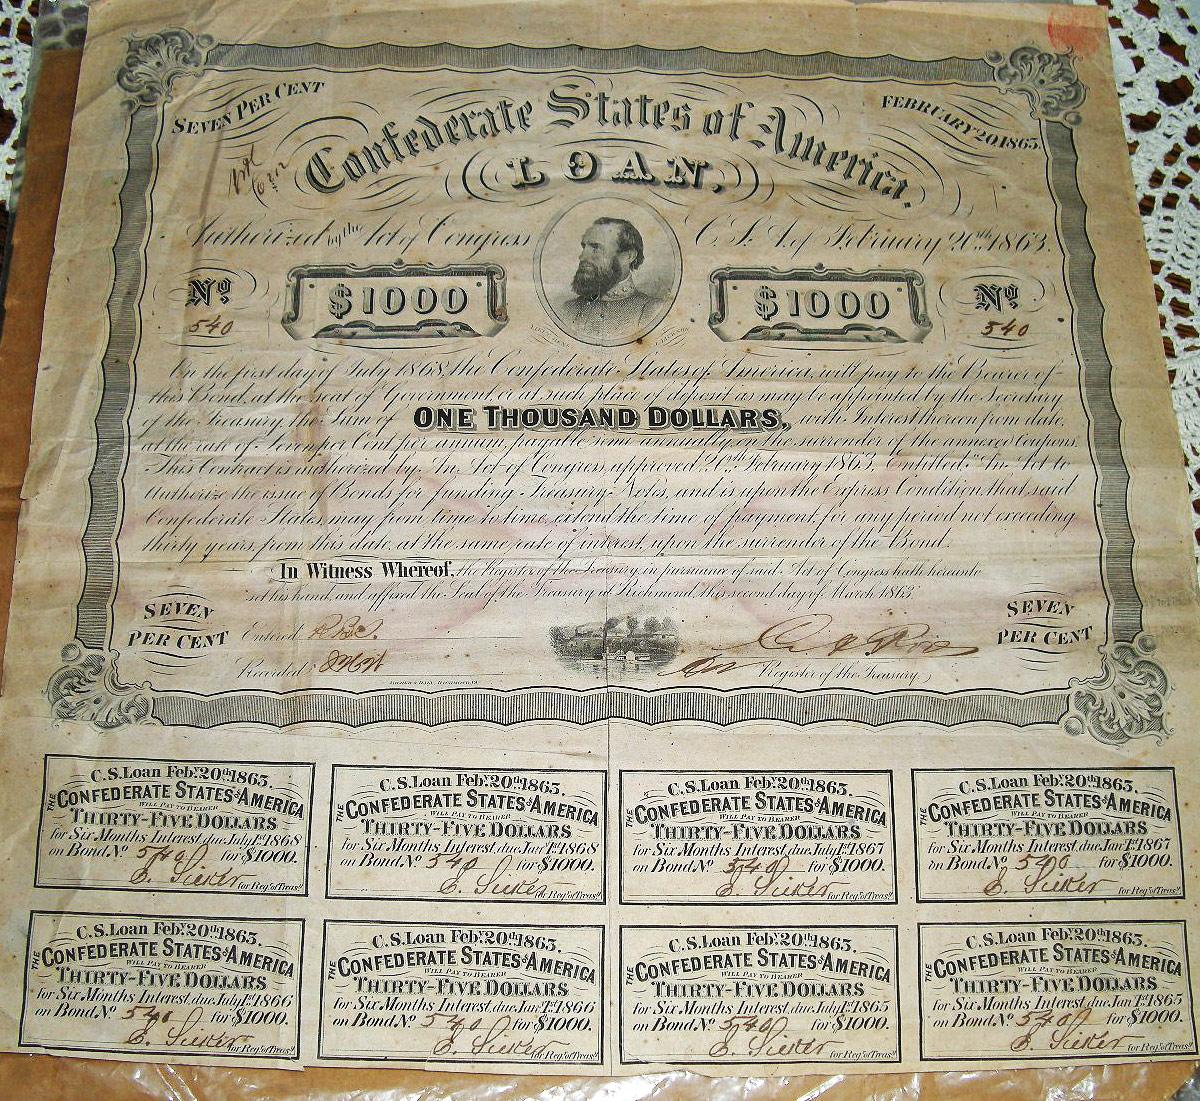 SEVEN PER CENT
FEBRUARY 20 1863.
Confederate States of America.
LOAN,
Authorized by the Act of Congress C.S.A. of February 20th 1863.
No.
540
$1000
$1000
No.
540
On the first day of July 1868, the Confederate States of America, will pay to the Bearer of
this Bond, at the seat of Government, or at such place of deposit as may be appointed by the Secretary
of the Treasury the Sum of ONE THOUSAND DOLLARS, with Interest thereon from date,
at the rate of Seven per Cent per annum, payable semi annually, on the surrender of the annexed Coupons.
This Contract is authorized by An Act of Congress, approved 20th February 1863, Entitled "An Act to
Authorize the issue of Bonds for funding Treasury Notes, and is upon the Express Condition that said
Confederate States, may from time to time, extend the time of payment for any period not exceeding
thirty years, from this date, at the same rate of interest, upon the surrender of the Bond.
In Witness Whereof, the Register of the Treasury, in pursuance of said Act of Congress hath hereunto
set his hand, and affixed the Seal of the Treasury at Richmond, this second day of March 1863
SEVEN
PER CENT
Entered
Recorded
Register of the Treasury.
SEVEN
PER CENT
C.S. Loan Feby. 20th 1863.
THE CONFEDERATE STATES OF AMERICA
WILL PAY TO BEARER
THIRTY-FIVE DOLLARS
for Six Months Interest, due July 1st 1868
on Bond No. 540 for $1000.
for Regr. of Treasy.
C.S. Loan Feby. 20th 1863.
THE CONFEDERATE STATES OF AMERICA
WILL PAY TO BEARER
THIRTY-FIVE DOLLARS
for Six Months Interest, due Jany 1st 1868
on Bond No. 540 for $1000.
for Regr. of Treasy.
C.S. Loan Feby. 20th 1863.
THE CONFEDERATE STATES OF AMERICA
WILL PAY TO BEARER
THIRTY-FIVE DOLLARS
for Six Months Interest, due July 1st 1867
on Bond No. 540 for $1000.
for Regr. of Treasy.
C.S. Loan Feby. 20th 1863.
THE CONFEDERATE STATES OF AMERICA
WILL PAY TO BEARER
THIRTY-FIVE DOLLARS
for Six Months Interest, due Jany 1st 1867
on Bond No. 540 for $1000.
for Regr. of Treasy.
C.S. Loan Feby. 20th 1863.
THE CONFEDERATE STATES OF AMERICA
WILL PAY TO BEARER
THIRTY-FIVE DOLLARS
for Six Months Interest, due July 1st 1866
on Bond No. 540 for $1000.
for Regr. of Treasy.
C.S. Loan Feby. 20th 1863.
THE CONFEDERATE STATES OF AMERICA
WILL PAY TO BEARER
THIRTY-FIVE DOLLARS
for Six Months Interest, due Jany 1st 1866
on Bond No. 540 for $1000.
for Regr. of Treasy.
C.S. Loan Feby. 20th 1863.
THE CONFEDERATE STATES OF AMERICA
WILL PAY TO BEARER
THIRTY-FIVE DOLLARS
for Six Months Interest, due July 1st 1865
on Bond No. 540 for $1000.
for Regr. of Treasy.
C.S. Loan Feby. 20th 1863.
THE CONFEDERATE STATES OF AMERICA
WILL PAY TO BEARER
THIRTY-FIVE DOLLARS
for Six Months Interest, due Jany 1st 1865
on Bond No. 540 for $1000.
for Regr. of Treasy.